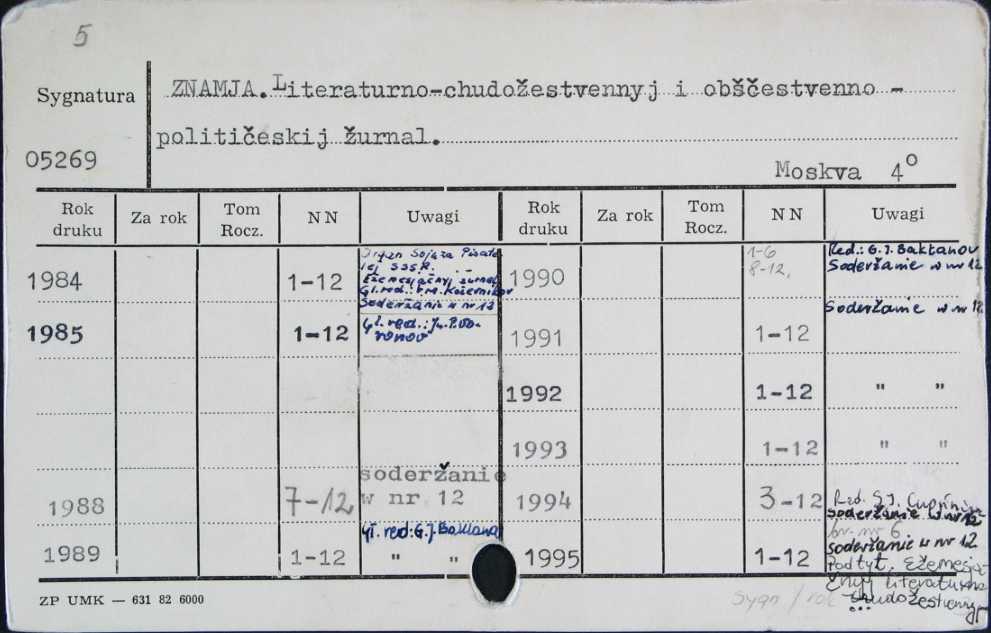 5
Sygnatura
05269
ZNAMJA. Literaturno-chudožestvennyj i obščestvenno -
političeskij žurnal.
Moskva 4º
Rok druku
Za rok
Tom Rocz.
NN
Uwagi
Rok druku
Za rok
Tom Rocz.
NN
Uwagi
1984 1-12
Organ Sojuza Pisate
lej SSSR.
Ežemesjačnyj žurnal
Gl. red.: V.M. Koževnikov
Soderžanie w nr 12
1985 1-12
Gl. red.: Ju. P. Vo-
ronov
1988 7-12
soderžanie
w nr 12
Gł. red: G.J. Baklanov
1989 1-12 " "
1990 1-6
8-12,
Red.: G. J. Baktanov
Soderžanie w nr 12
Soderžanie w nr 12
1991 1-12
1992 1-12 " "
1993 1-12 " "
1994 3-12
Red. S.J. Cuprinin
soderžanie w nr 12
br. nr 6
1995 1-12
soderžanie w nr 12
Podtyt. Ežemesja-
čnyj literaturno
chudožestvennyj
...
ZP UMK — 631 82 6000
Sygn / rok